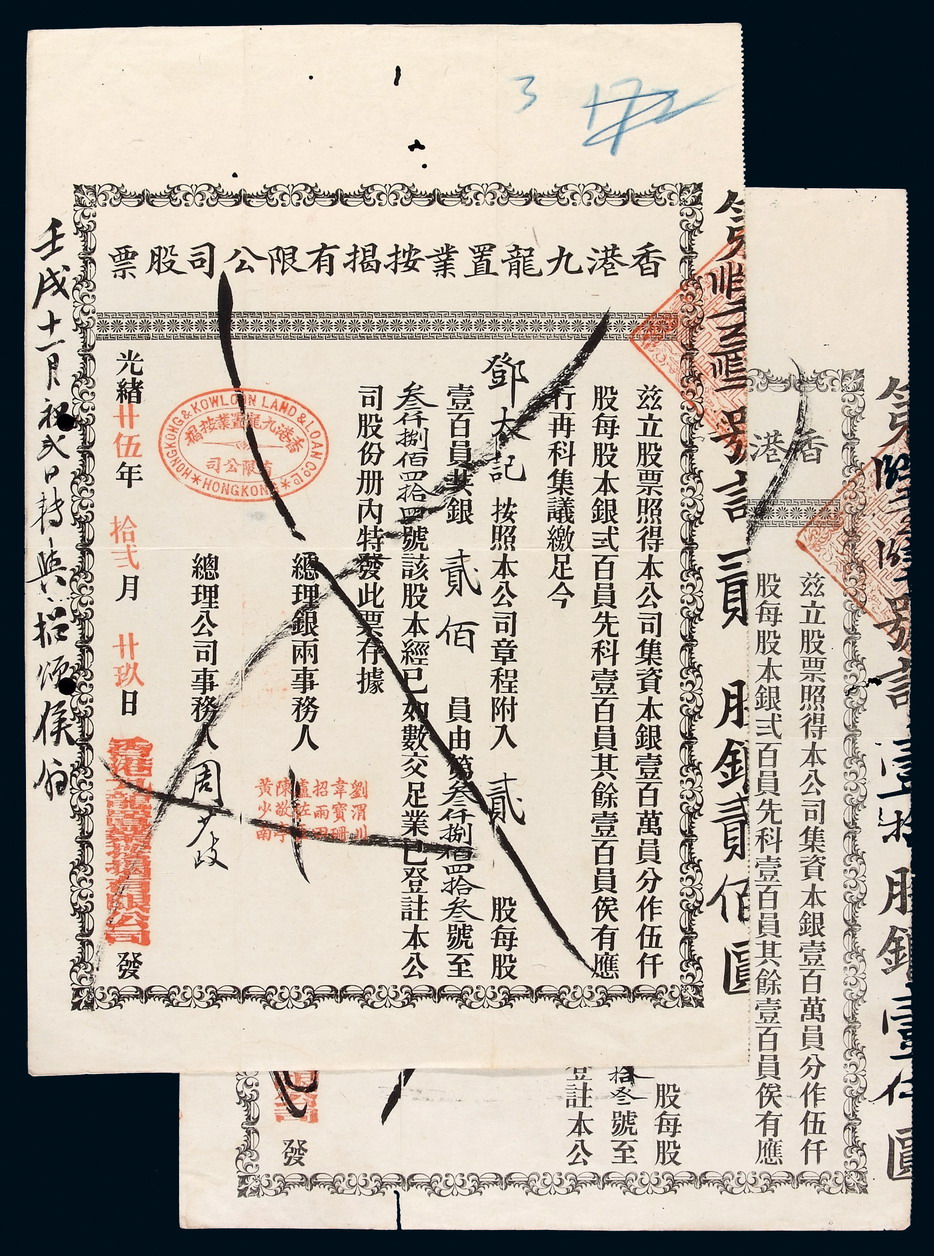 香港九龍置業按揭有限公司股票
茲立股票照得本公司集資本銀壹百萬員分作伍仟
股每股本銀弍百員先科壹百員其餘壹百員俟有應
行再科集議繳足今
鄧太記 按照本公司章程附入 貳 股每股
壹百員共銀 貳佰 員由第叁仟捌佰四拾叁號至
叁仟捌佰四拾四號該股本經已如數交足業已登註本公
司股份册內特發此票存據
總理銀兩事務人
總理公司事務人 周少岐
光緒廿伍年 拾弍月 廿玖日
香港九龍置業按揭有限公司
發
HONGKONG & KOWLOON LAND & LOAN CO LD
香港九龍置業按揭
有限公司
HONGKONG
劉渭川
韋寶珊
招雨田
盧佐
陳敬亭
黃少南
壬戌十一月初弍日轉與招頌侯
3
號計貳 股銀貳佰圓
香港
茲立股票照得本公司集資本銀壹百萬員分作伍仟
股每股本銀弍百員先科壹百員其餘壹百員俟有應
股每股
拾叁號至
登註本公
發
壹拾股銀壹仟圓